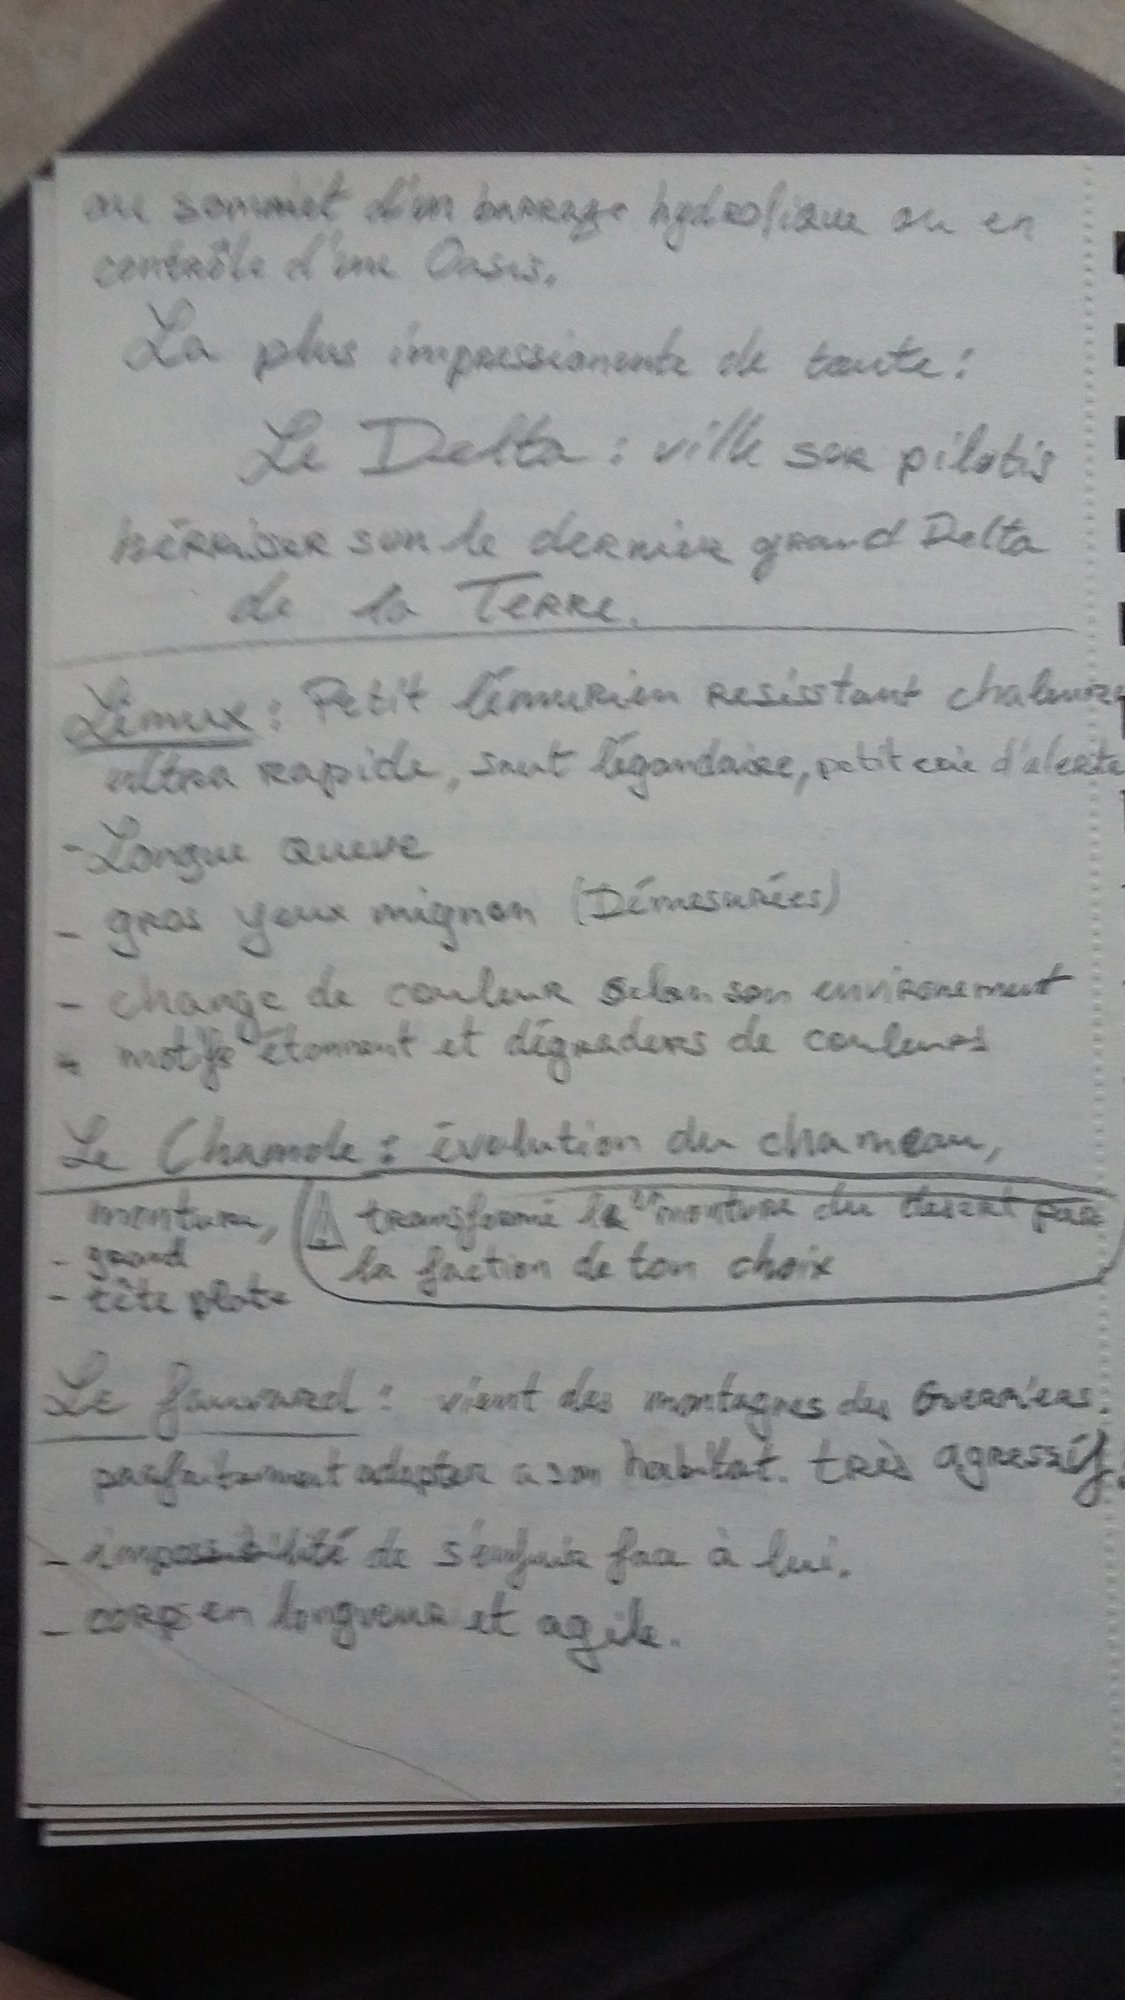 au sommet d'un barrage hydrolique ou en
contrôle d'une Oasis.
La plus impressionente de toute :
Le Delta : ville sur pilotis
hérriser sur le dernier grand Delta
de la Terre.
Lémux : Petit lémurien resisstant chaleur
ultra rapide, saut légandaire, petit crie d'alerte
- Longue queue
- gros yeux mignon (Démesurées)
- change de couleur selon son environement
- motifs étonnant et dégraders de couleurs
Le Chamole : évolution du chameau,
monture, ⚠ transforme la 1er monture du desert par
- grand
la faction de ton choix
- tête plate
Le fauvard : vient des montagnes des Guerriers.
parfaitement adapter a son habitat. très agressif.
- impossibilité de s'enfuir face à lui.
- corps en longueur et agile.